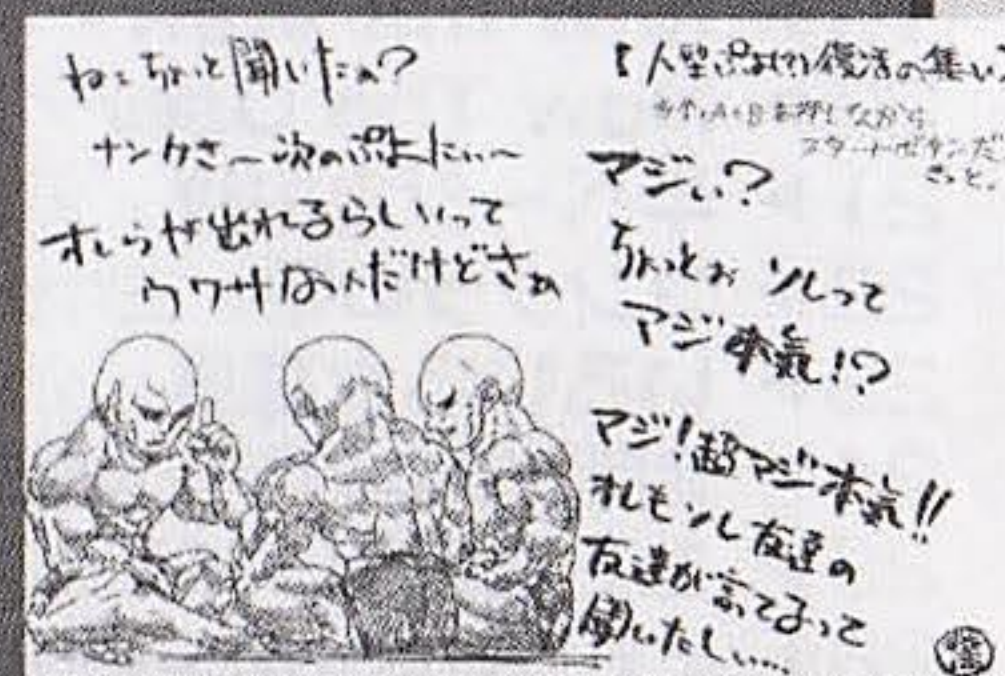 ねェちょっと聞いたぁ?
ナンかさ〜次のぷよにぃ〜
オレらが出れるらしいって
ウワサなんだけどさぁ
【人型ぷよ(?)復活の集い】
を押しながら
スタートボタンだ
さっと。
マジぃ?
ちょっとぉ ソレって
マジ本気!?
マジ!超マジ本気!!
オレもソレ友達の
友達が言ってるって
聞いたしぃ…